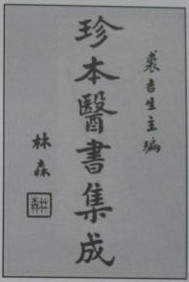 裘吉生主編
珍本醫書集成
林森